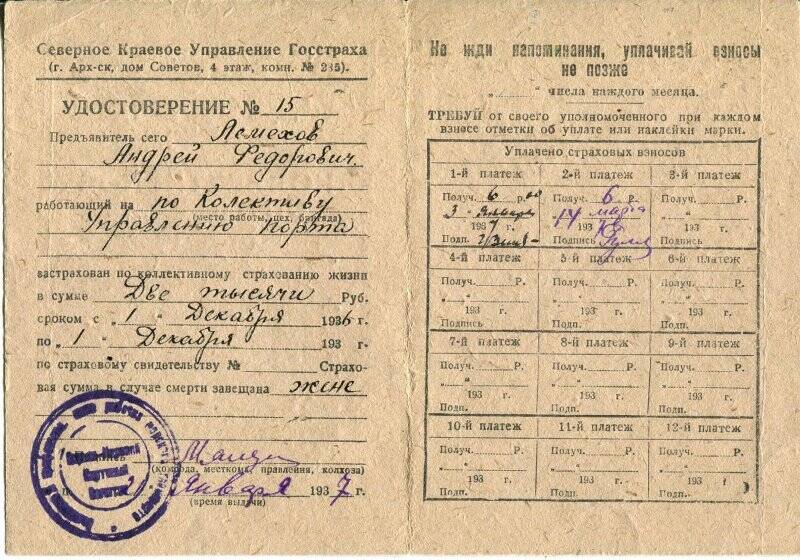 Северное Краевое Управление Госстраха
(г. Арх-ск, дом Советов, 4 этаж, комн. № 235).
УДОСТОВЕРЕНИЕ № 15
Предъявитель сего Асмехов
Андрей Федорович
работающий на по Колективу
(место работы, цех, бригада)
Управлению порта
застрахован по коллективному страхованию жизни
в сумме Две тысячи Руб.
сроком с „ 1 “ Декабря 1936 г.
по „ 1 “ Декабря 193 г.
по страховому свидетельству № Страхо-
вая сумма в случае смерти завещана жене
(комода, местком, правления, колхоза)
Января 1937 г.
(время выдачи)
Не жди напоминания, уплачивай взносы
не позже
„ “ числа каждого месяца.
ТРЕБУЙ от своего уполномоченного при каждом
взносе отметки об уплате или наклейки марки.
Уплачено страховых взносов
1-й платеж 2-й платеж 3-й платеж
Получ. 6 р. 00 Получ. 6 Р. Получ. Р.
3 Января 14 марта „ “
1937 г. 193 193 г.
Подп. Подпись Подпись
4-й платеж 5-й платеж 6-й платеж
Получ. Р. Получ. Р. Получ. Р.
„ “ „ “ „ “
193 г. 193 г. 193 г.
Подпись Подп. Подп.
7-й платеж 8-й платеж 9-й платеж
Получ. Р. Получ. Р. Получ. Р.
„ “ „ “ „ “
193 г. 193 г. 193 г.
Подп. Подп. Подп.
10-й платеж 11-й платеж 12-й платеж
Получ. Р. Получ. Р. Получ. Р.
„ “ „ “ „ “
193 г. 193 г. 193 г.
Подп. Подп. Подп.